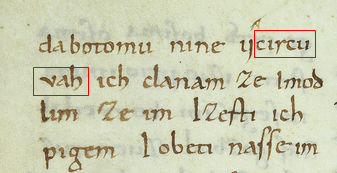 dabotomu nine ijcircu
vah ich clanam ze imod
lim ze im izesti ich
pigem lobeti nasse im